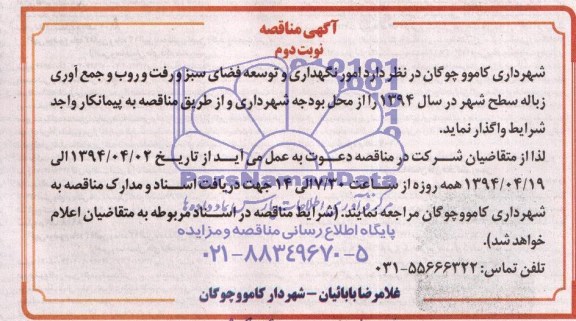 آگهی مناقصه
نوبت دوم
شهرداری کامووچوگان در نظر دارد امور نگهداری و توسعه فضای سبز و رفت و روب و جمع آوری
زباله سطح شهر در سال ۱۳۹۴ را از محل بودجه شهرداری و از طریق مناقصه به پیمانکار واجد
شرایط واگذار نماید.
لذا از متقاضیان شرکت در مناقصه دعوت به عمل می آید از تاریخ ۱۳۹۴/۰۴/۰۲ الی
۱۳۹۴/۰۴/۱۹ همه روزه از ساعت ۷/۳۰ الی ۱۴ جهت دریافت اسناد و مدارک مناقصه به
شهرداری کامووچوگان مراجعه نمایند. (شرایط مناقصه در اسناد مربوطه به متقاضیان اعلام
خواهد شد).
تلفن تماس: ۵۵۶۶۶۳۲۲-۰۳۱
غلامرضا بابائیان - شهردار کامووچوگان
ParsNamadData
پایگاه اطلاع رسانی مناقصه و مزایده
۰۲۱-۸۸۳۴۹۶۷۰-۵